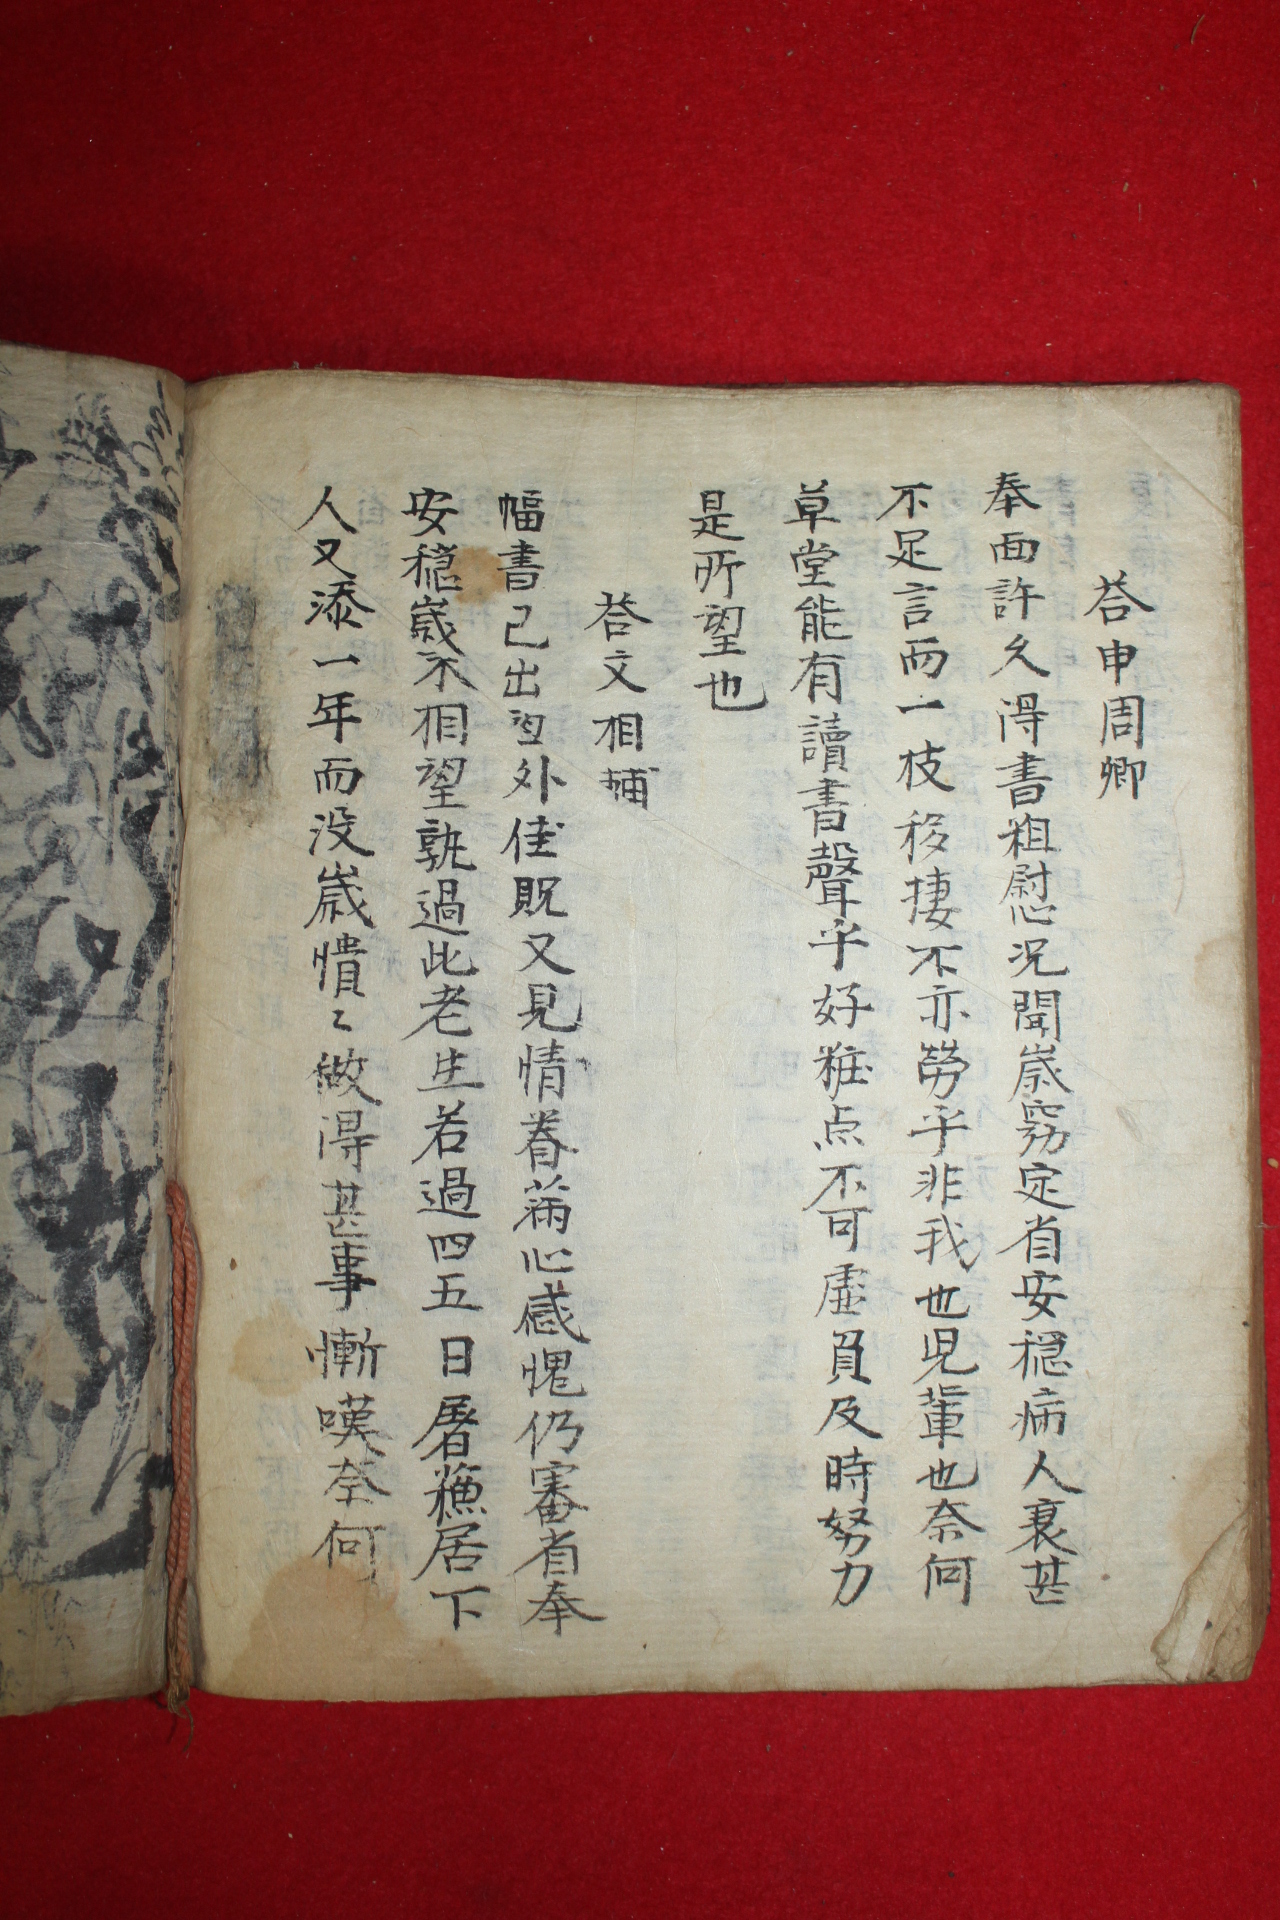 答申周卿
奉面許久得書粗慰況聞歲窮定省安穩病人衰甚
不足言而一枝移捿不亦勞乎非我也児軰也奈何
草堂能有讀書聲乎好粧点不可虛負及時努力
是所望也
答文相輔
幅書已出望外佳貺又見情眷荷心感愧仍審省奉
安穩歲不相望孰過此老生若過四五日屠蘇居下
人又添一年而没歲憒〻做得甚事慚嘆奈何